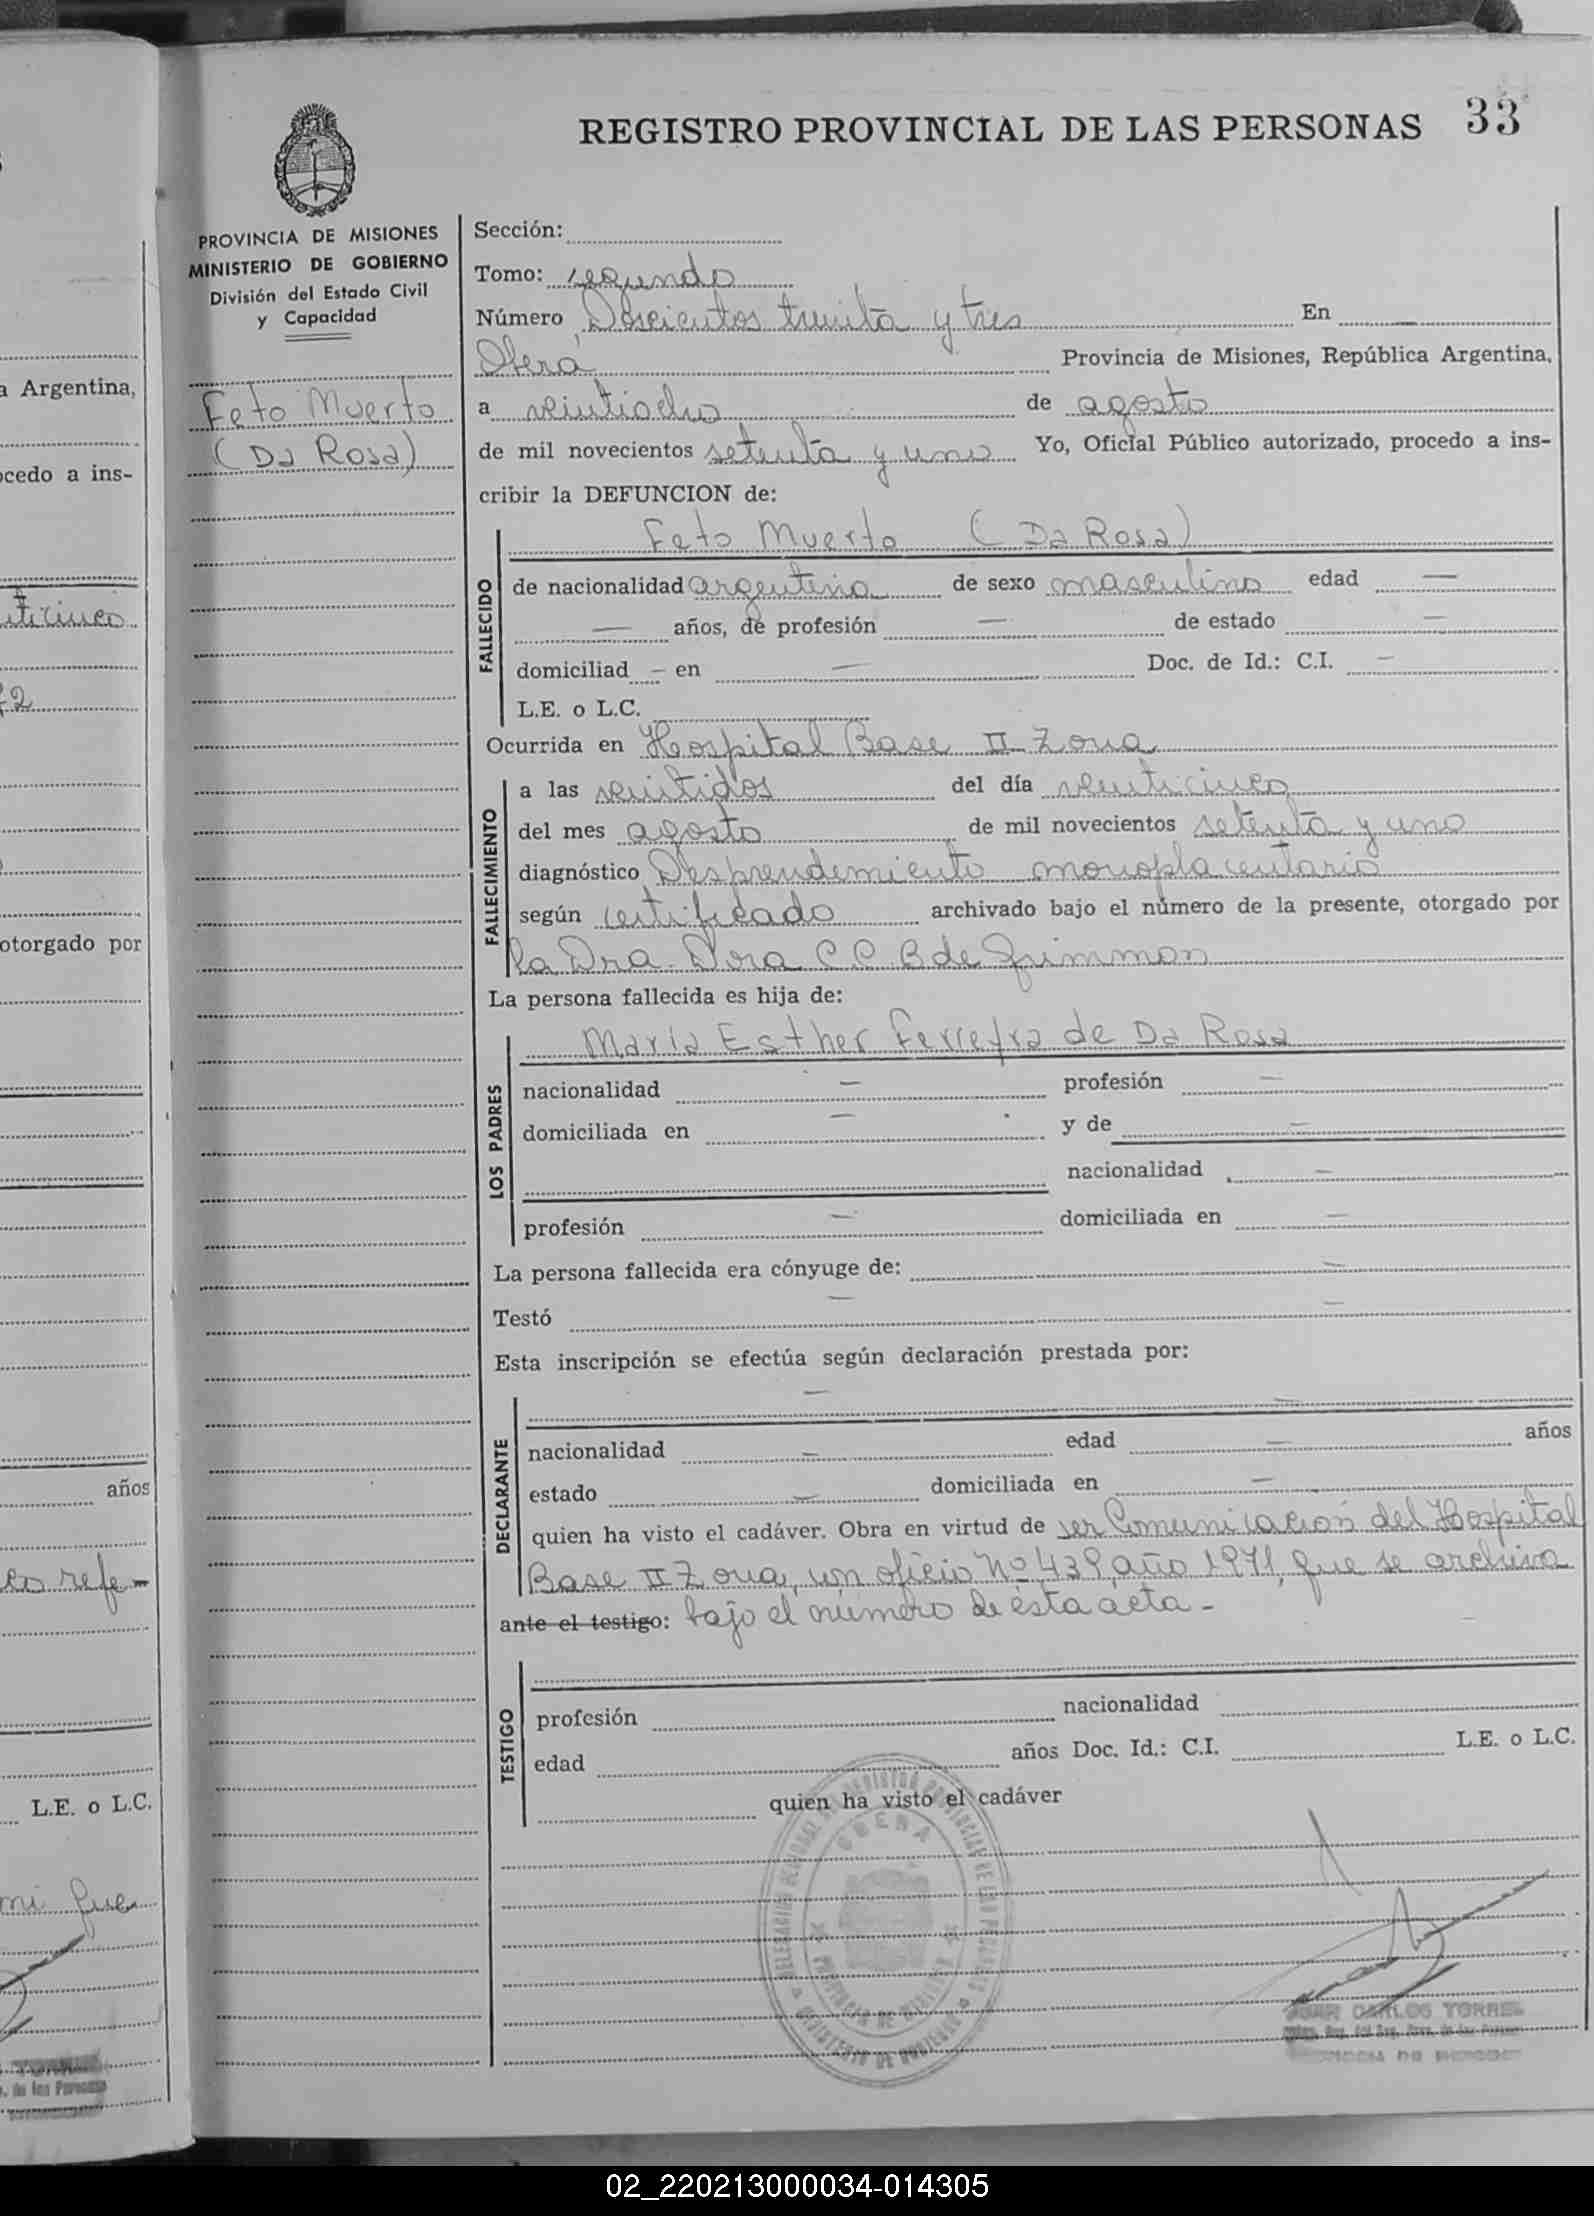 REGISTRO PROVINCIAL DE LAS PERSONAS 33
PROVINCIA DE MISIONES
MINISTERIO DE GOBIERNO
División del Estado Civil
y Capacidad
Feto Muerto
(Da Rosa)
Sección:
Tomo: segundo
Número Doscientos treinta y tres En
Oberá Provincia de Misiones, República Argentina,
a veintiocho de agosto
de mil novecientos setenta y uno Yo, Oficial Público autorizado, procedo a ins-
cribir la DEFUNCION de:
Feto Muerto (Da Rosa)
FALLECIDO
de nacionalidad argentina de sexo masculino edad —
— años, de profesión — de estado —
domiciliad — en — Doc. de Id.: C.I. —
L.E. o L.C.
Ocurrida en Hospital Base II Zona
FALLECIMIENTO
a las veintidos del día veinticinco
del mes agosto de mil novecientos setenta y uno
diagnóstico Desprendimiento monoplacentario
según certificado archivado bajo el número de la presente, otorgado por
la Dra. Dora C C B de
La persona fallecida es hija de:
María Esther Ferreyra de Da Rosa
LOS PADRES
nacionalidad — profesión —
domiciliada en — y de —
nacionalidad —
profesión — domiciliada en —
La persona fallecida era cónyuge de: —
Testó — —
Esta inscripción se efectúa según declaración prestada por:
— —
DECLARANTE
nacionalidad — edad — años
estado — domiciliada en —
quien ha visto el cadáver. Obra en virtud de ser Comunicación del Hospital
Base II Zona, un oficio Nº 439, año 1971, que se archiva
ante el testigo: bajo el número de ésta acta -
TESTIGO
profesión nacionalidad
edad años Doc. Id.: C.I. L.E. o L.C.
quien ha visto el cadáver
OBERA
PROVINCIA DE MISIONES
JUAN CARLOS TORRES
a Argentina,
ocedo a ins-
otorgado por
años
co refe-
L.E. o L.C.
mi que
02_220213000034-014305